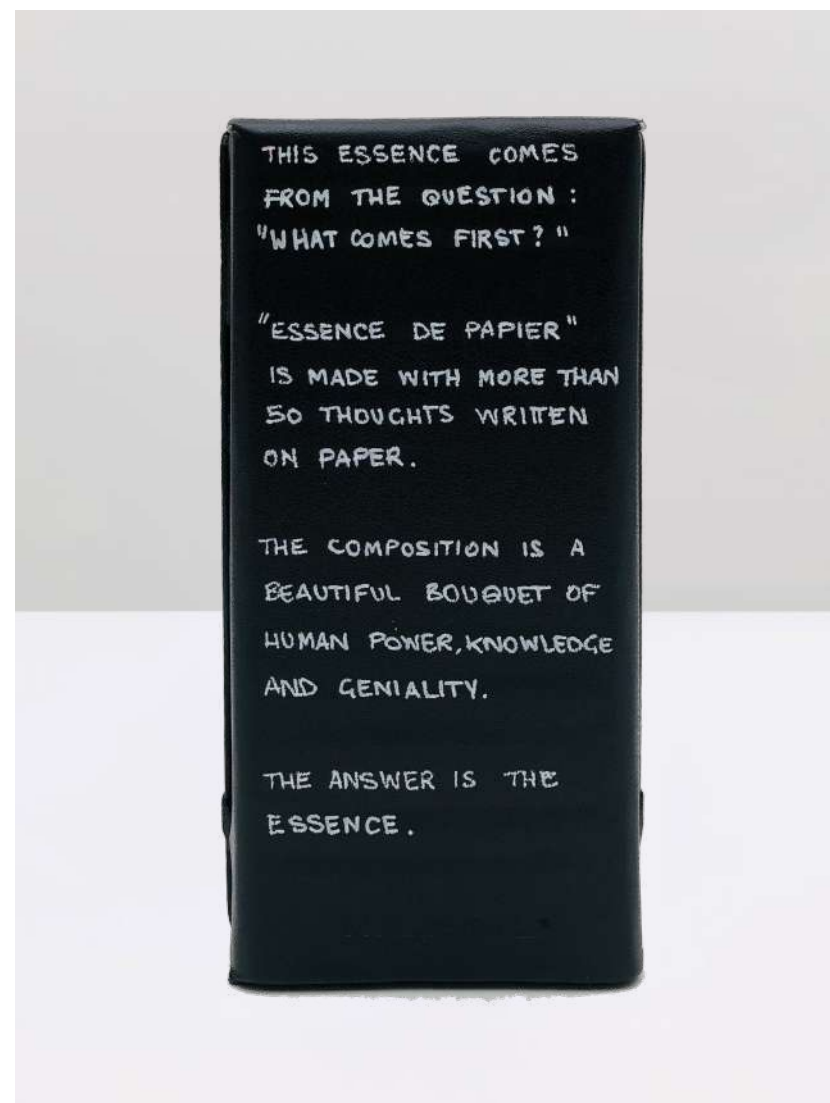 THIS ESSENCE COMES
FROM THE QUESTION :
"WHAT COMES FIRST ? "
"ESSENCE DE PAPIER"
IS MADE WITH MORE THAN
50 THOUGHTS WRITTEN
ON PAPER.
THE COMPOSITION IS A
BEAUTIFUL BOUQUET OF
HUMAN POWER, KNOWLEDGE
AND GENIALITY.
THE ANSWER IS THE
ESSENCE.